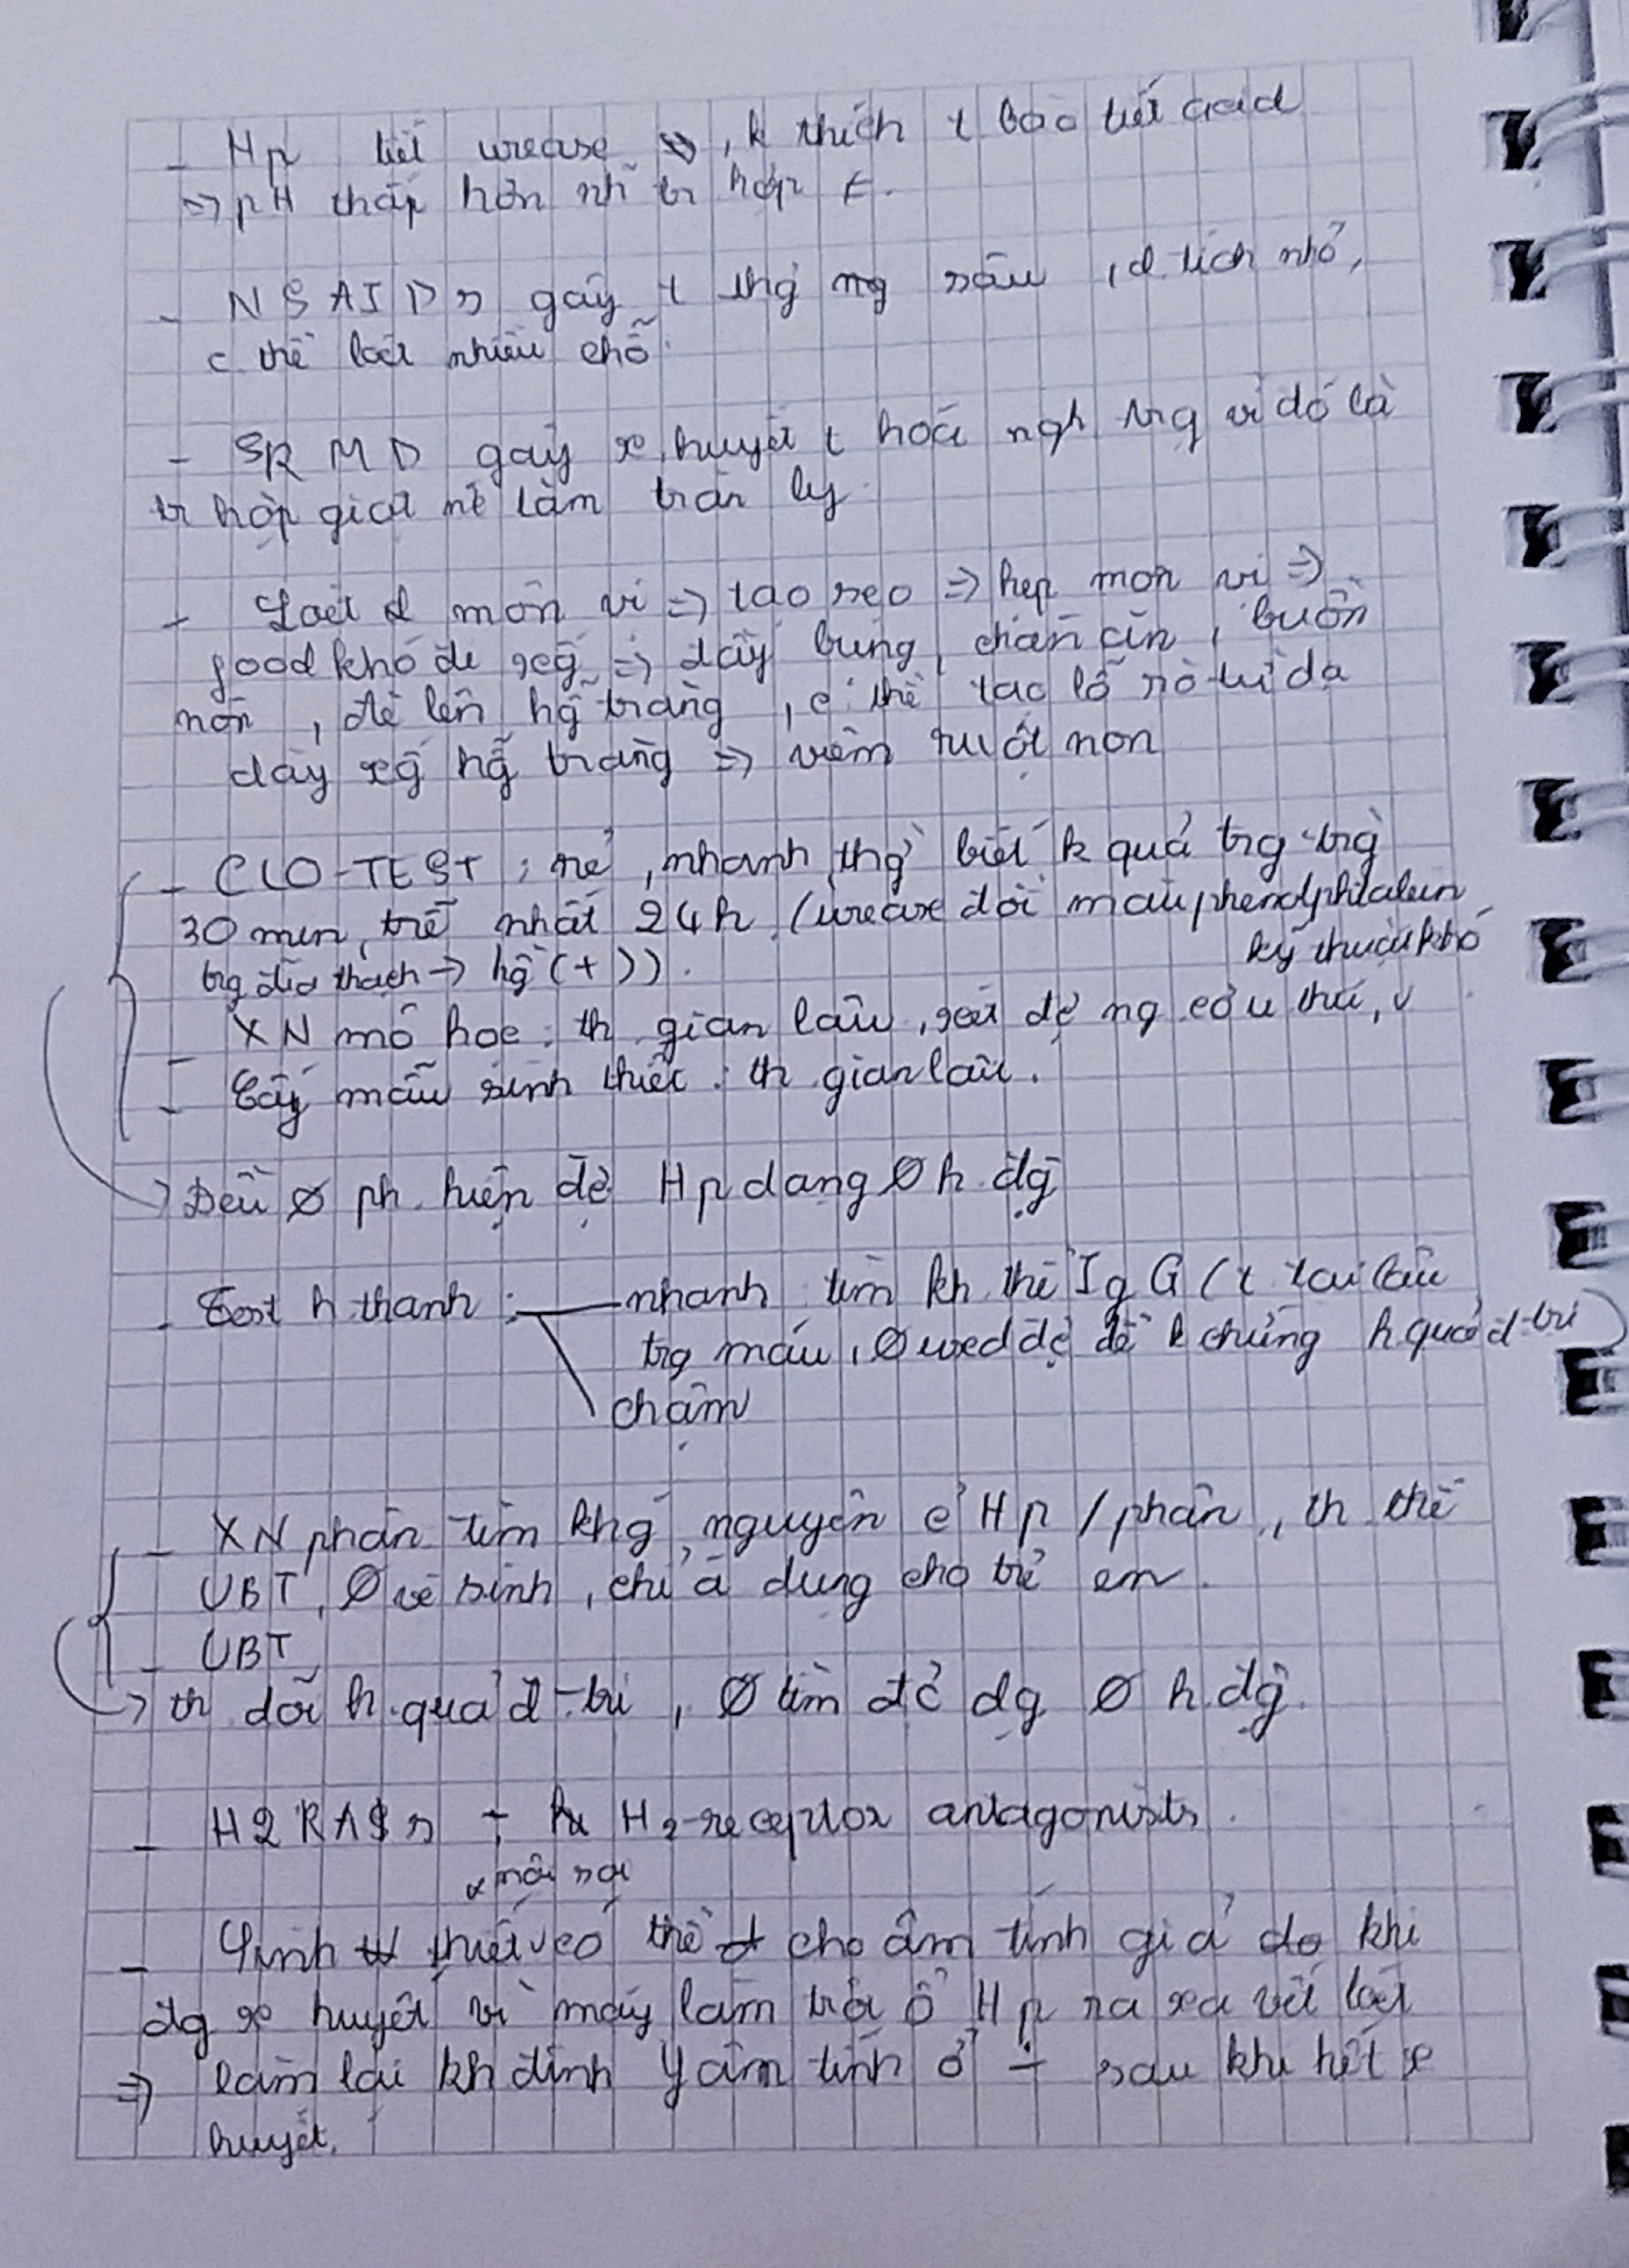 - Hp tiết urease, k thích t bào tiết acid
=> pH thấp hơn nh tr hợp ≠.
- NSAIDs gây t thg sâu, d tích nhỏ,
c thể loét nhiều chỗ.
- SRMD gây x. huyết t hoá ngh. trg vì đó là
tr hợp giọt nc làm tràn ly.
- Loét môn vị => tạo sẹo => hẹp môn vị =>
food khó đi xg => đầy bụng, chán ăn, buồn
nôn, đè lên hg tràng, c thể tạo lỗ rò từ dạ
dày xg hg tràng => viêm ruột non
- CLO-TEST: rẻ, nhanh, thg biết k quả trg vg
30 min, trễ nhất 24h. (urease đổi màu phenolphtalein
kỹ thuật khó
trg đĩa thạch -> hg (+)).
- XN mô học: th gian lâu, xét đc ng cơ u thư, v
- Cấy mẫu sinh thiết: th gian lâu.
-> Đều Ø ph. hiện đc Hp dạng Ø h. đg
- Test h thanh: nhanh tìm kh thể IgG (t tại lâu
trg máu, Ø used đc để k chứng h quả đ-trị)
chậm
- XN phân tìm khg nguyên c Hp / phân, th thế
UBT, Ø vệ sinh, chỉ á dụng cho trẻ em.
- UBT
-> th dõi h. quả đ-trị, Ø tìm đc dg Ø h. đg.
- H2RAs ÷ H2-receptor antagonists.
nội soi
- Sinh thiết v có thể cho âm tính giả do khi
đg x huyết vì máy làm trôi ổ Hp ra xa vết loét
=> làm lại kh định âm tính ở ÷ sau khi hết x
huyết.